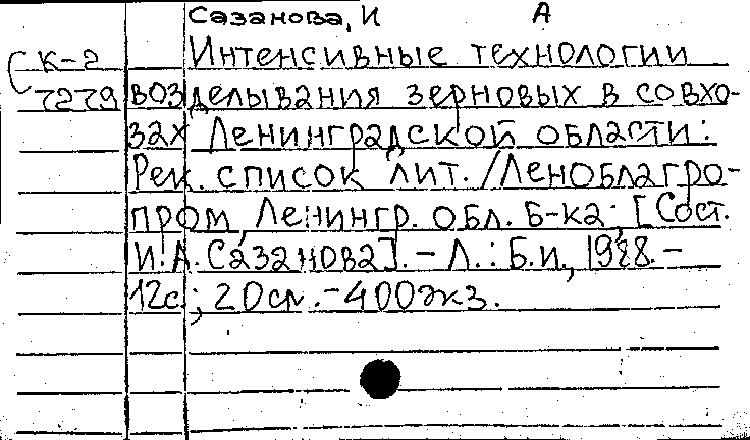 Сазанова, И А
(К-2 Интенсивные технологии
7279 возделывания зерновых в совхо-
зах Ленинградской области:
Рек. список лит. /Леноблагро-
пром, Ленингр. обл. б-ка; [Сост.
И.А. Сазанова]. - Л.: Б.и., 1988. -
12с.; 20см. - 400экз.